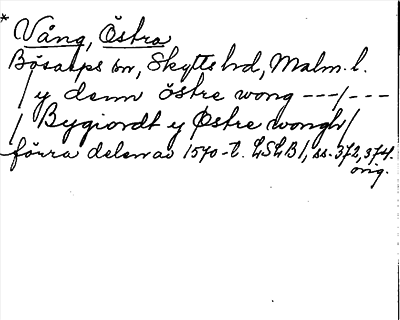 * Vång, Östra
Bösarps sn, Skytts hd, Malm. l.
/ y denn östre wong ---/---
/ Bygiordt y Østre wongh/
förra delen av 1570-t. LSLB 1, ss. 372, 374.
orig.